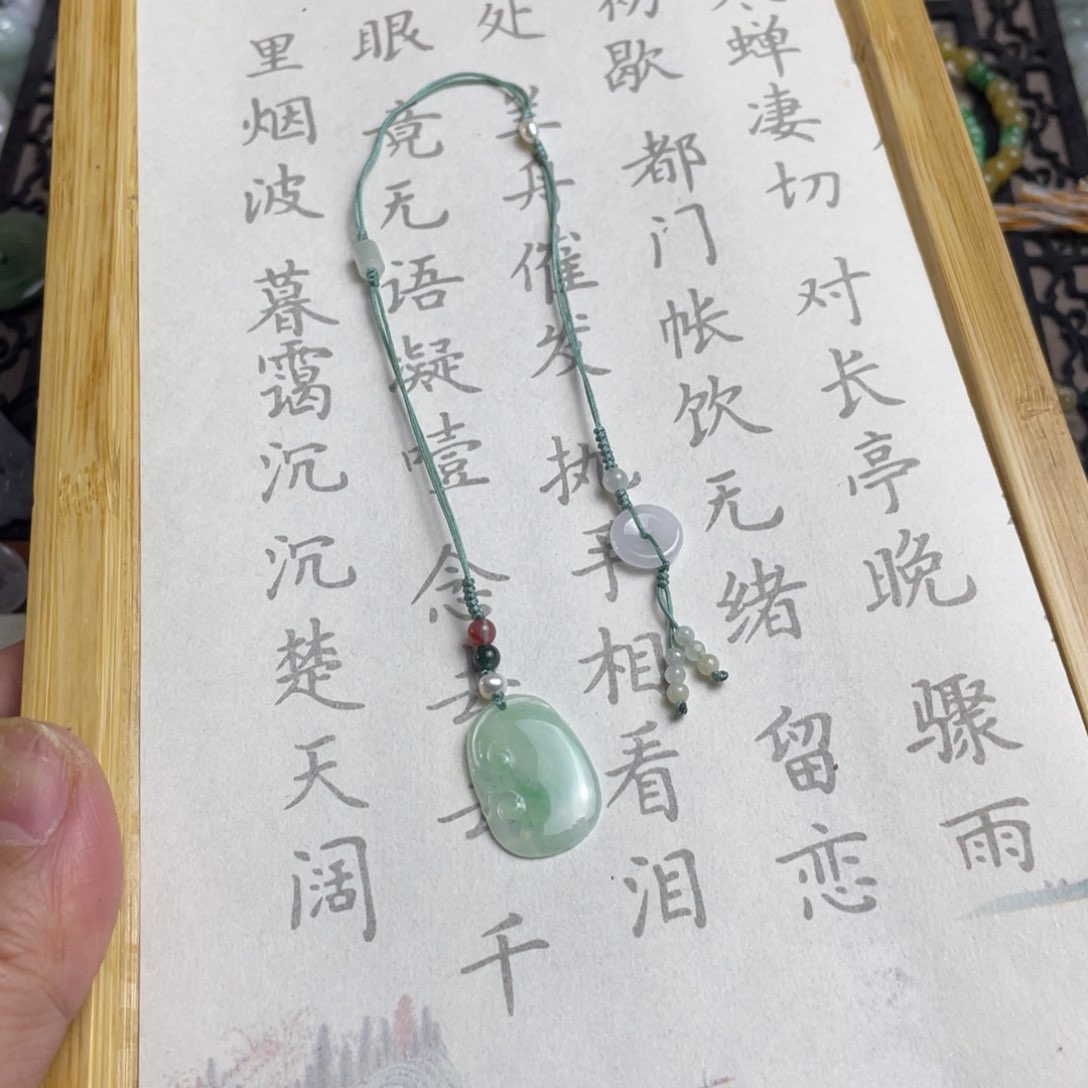 蝉凄切 对长亭晚 骤雨
初歇 都门帐饮无绪 留恋
处 兰舟催发 执手相看泪
眼 竟无语凝噎 念去去 千
里烟波 暮霭沉沉楚天阔